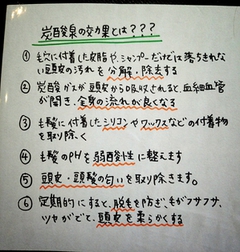 炭酸泉の効果とは???
① 毛穴に付着した皮脂や、シャンプーだけでは落ちきれな
い頭皮の汚れを分解・除去する
② 炭酸ガスが頭皮から吸収されると、血管
が開き、全身の流れが良くなる
③ 毛髪に付着したシリコンやワックスなどの付着物
を取り除く
④ 毛髪のPHを弱酸性に整えます
⑤ 頭皮・頭髪の匂いを取りのぞきます。
⑥ 定期的にすると、脱毛を防ぎ、毛がフサフサ、
ツヤがでて、頭皮を柔らかくする